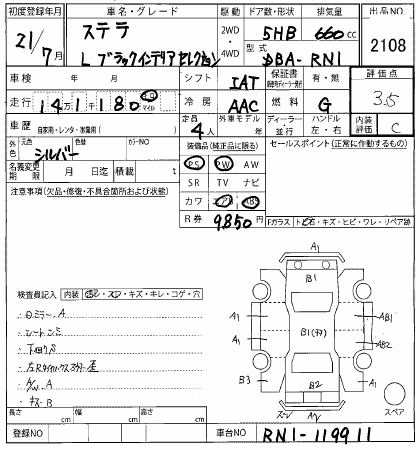 初度登録年月
車名・グレード
駆動
ドア数・形状
排気量
出品NO
21/7月
ステラ
L ブラックインテリアセレクション
2WD
4WD
5HB
660cc
型式
DBA-RN1
2108
車検 年 月
シフト
IAT
保証書
有・無
評価点
3.5
走行 141180 km マイル
冷房
AAC
燃料
G
車歴 自家用・レンタ・
定員
4人
外車モデル
年
ディーラー・並行
ハンドル
左・右
内装評価
C
外色
元色
シルバー
色替
カラーNO
装備品(純正品に限る)
セールスポイント(正常に作動するもの)
名義変更期限 月 日迄
積載 t
PS PW AW
SR TV ナビ
カワ エアB ABS
注意事項(欠品・修復・不具合箇所および改造)
R券 9850円
Fガラス トビ石・キズ・ヒビ・ワレ・リペア跡
検査員記入
内装 ・スロ・キズ・キレ・コゲ・穴
・ミラー A
・シートシミ
・下回りS
・A/W A
・キズ B
A1
B1
A1
A1
B3
B1
AB1
AB2
A1
B2
スペア
長さ cm
幅 cm
高さ cm
登録NO
車台NO
RN1-119911